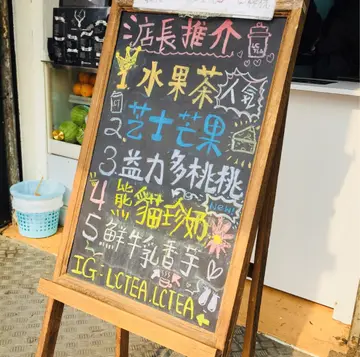 店長推介
1水果茶 人氣
2.芝士芒果
3.益力多桃桃
4熊貓珍奶 New!
5鮮牛乳香芋
IG:LCTEA.LCTEA